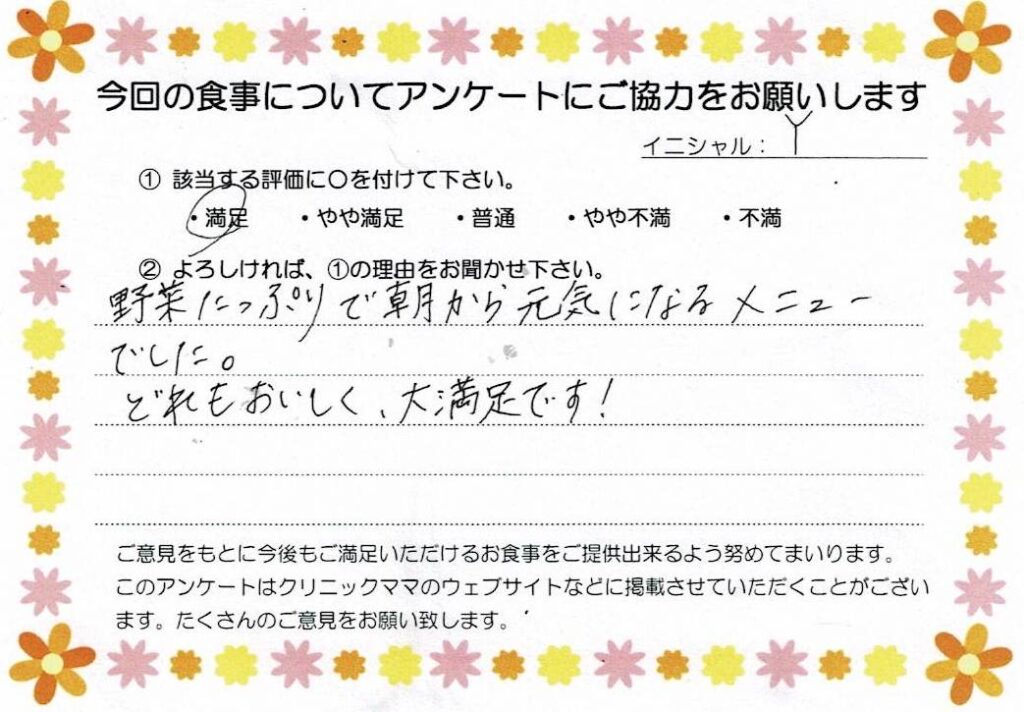 今回の食事についてアンケートにご協力をお願いします
イニシャル: Y
① 該当する評価に〇を付けて下さい。
・満足 ・やや満足 ・普通 ・やや不満 ・不満
② よろしければ、①の理由をお聞かせ下さい。
野菜たっぷりで朝から元気になるメニュー
でした。
どれもおいしく、大満足です!
ご意見をもとに今後もご満足いただけるお食事をご提供出来るよう努めてまいります。
このアンケートはクリニックママのウェブサイトなどに掲載させていただくことがござい
ます。たくさんのご意見をお願い致します。